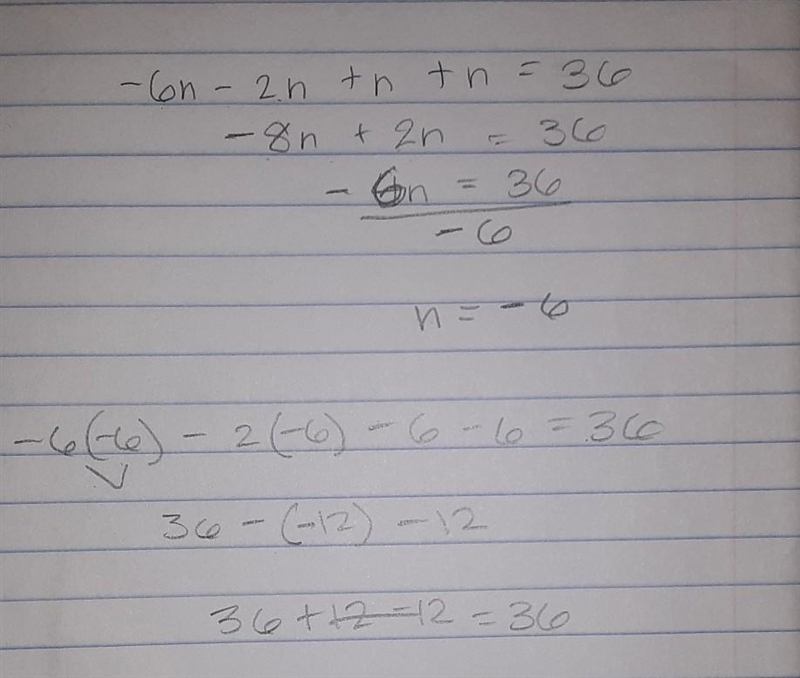 -6n - 2n + n + n = 36
-8n + 2n = 36
-6n = 36
-6
n = -6
-6(-6) - 2(-6) - 6 - 6 = 36
36 - (-12) - 12
36 + 12 - 12 = 36